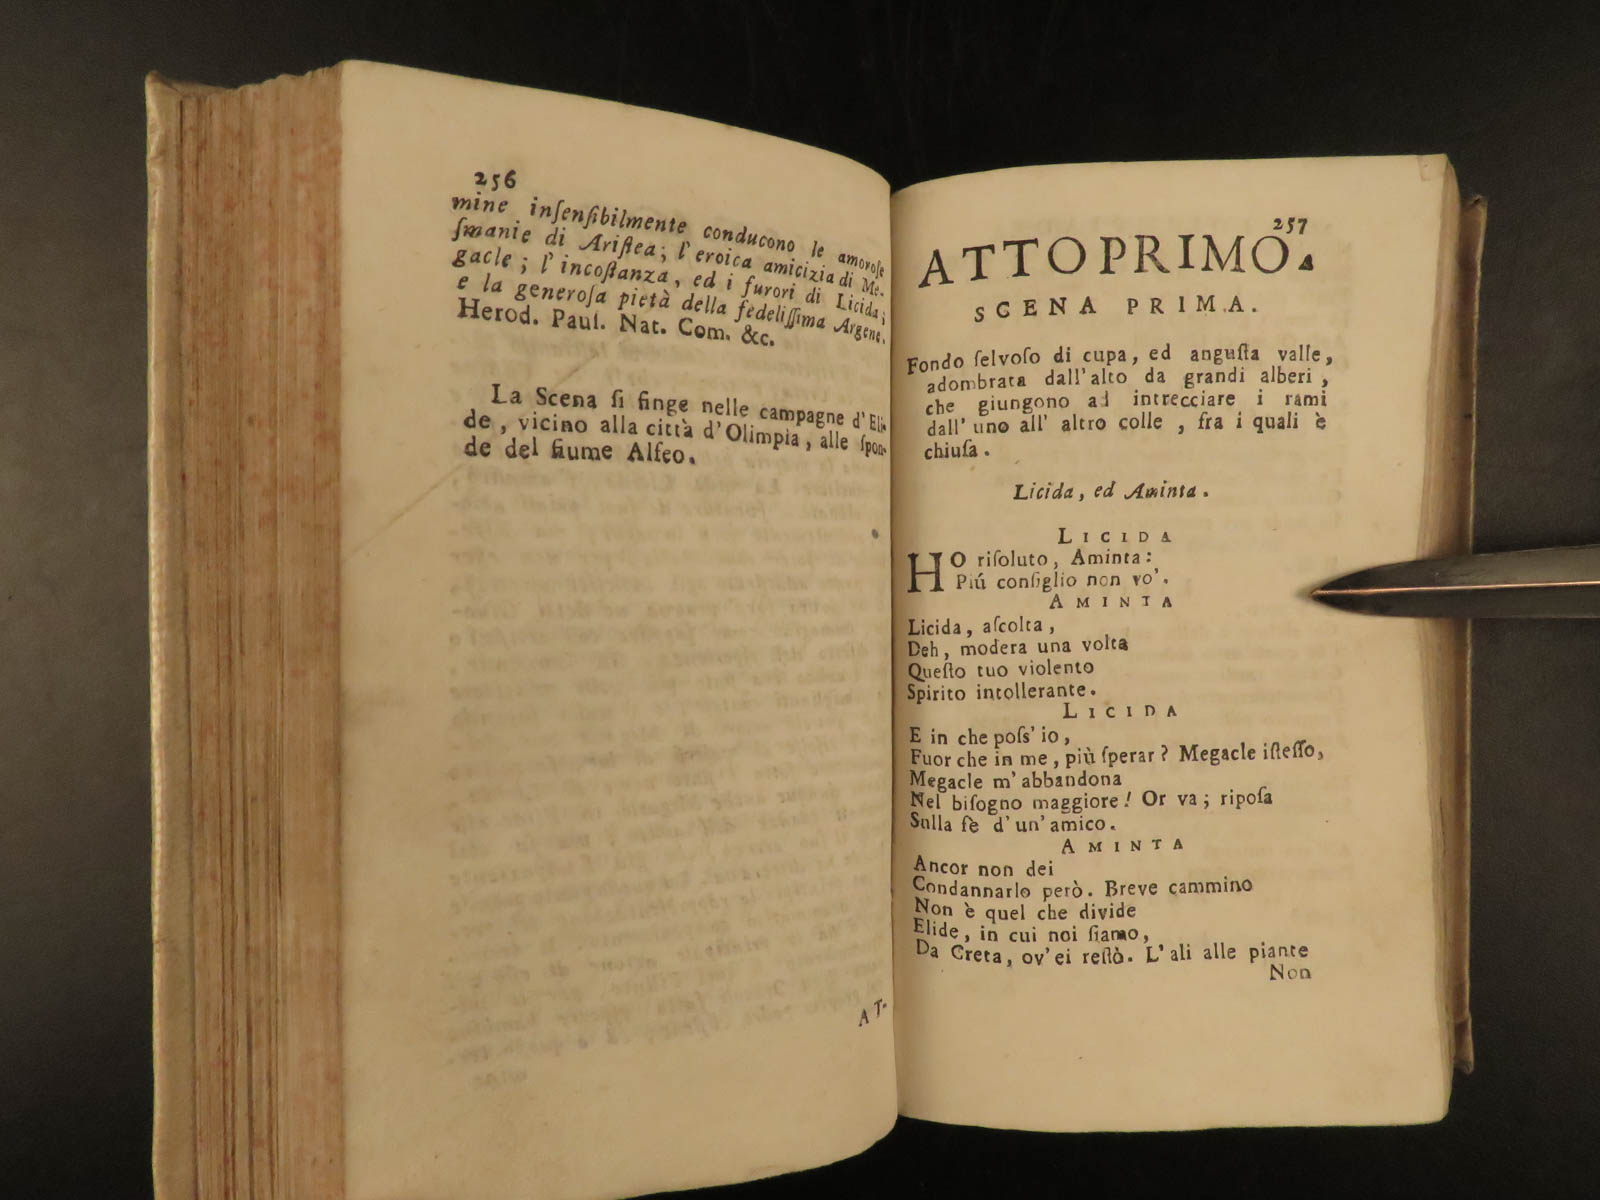 256
mine inſenſibilmente conducono le amoroſe
ſmanie di Ariſtea; l'eroica amicizia di Me-
gacle; l'incoſtanza, ed i furori di Licida;
e la generoſa pietà della fedeliſſima Argene.
Herod. Pauſ. Nat. Com. &c.
La Scena ſi finge nelle campagne d'Eli-
de, vicino alla città d'Olimpia, alle ſpon-
de del fiume Alfeo.
AT-
257
ATTO PRIMO.
SCENA PRIMA.
Fondo ſelvoſo di cupa, ed anguſta valle,
adombrata dall'alto da grandi alberi,
che giungono ad intrecciare i rami
dall'uno all'altro colle, fra i quali è
chiuſa.
Licida, ed Aminta.
LICIDA
HO riſoluto, Aminta:
Piú conſiglio non vo'.
AMINTA
Licida, aſcolta,
Deh, modera una volta
Queſto tuo violento
Spirito intollerante.
LICIDA
E in che poſs'io,
Fuor che in me, più ſperar? Megacle iſteſſo,
Megacle m'abbandona
Nel biſogno maggiore! Or va; ripoſa
Sulla fè d'un'amico.
AMINTA
Ancor non dei
Condannarlo però. Breve cammino
Non è quel che divide
Elide, in cui noi ſiamo,
Da Creta, ov'ei reſtò. L'ali alle piante
Non